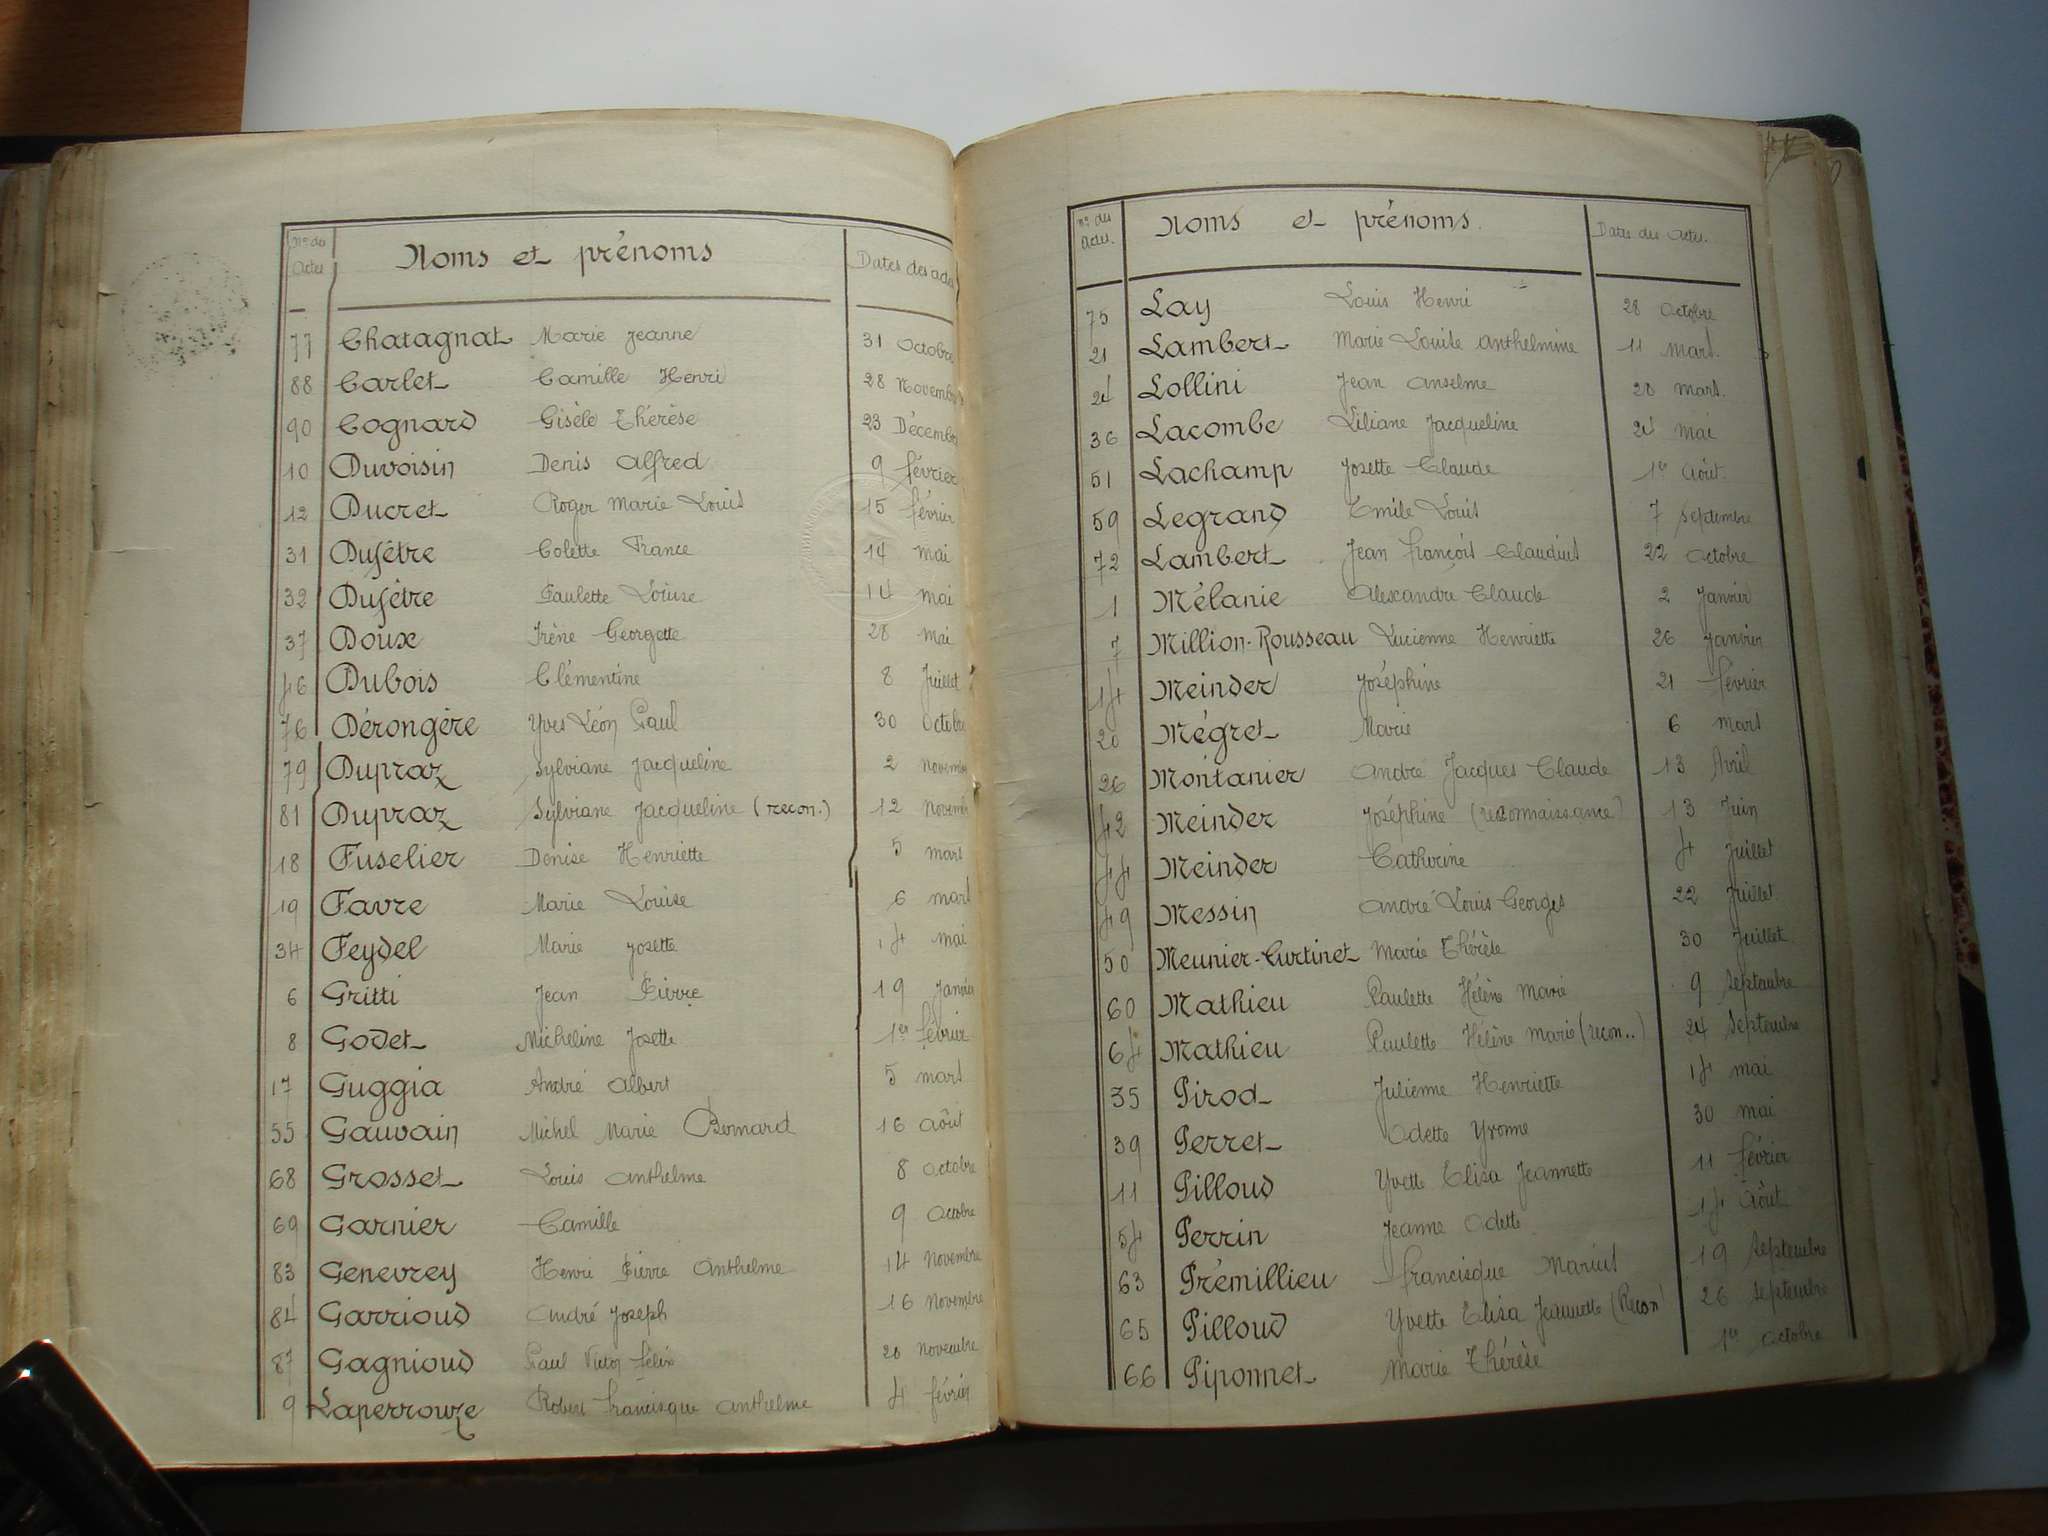 Nos des Actes Noms et prénoms Dates des actes
77 Chatagnat Marie Jeanne 31 Octobre
88 Carlet Camille Henri 28 Novembre
90 Cognard Gisèle Thérèse 23 Décembre
10 Duvoisin Denis Alfred 9 février
12 Ducret Roger Marie Louis 15 février
31 Dufêtre Colette France 14 mai
32 Dufêtre Paulette Louise 14 mai
37 Doux Irène Georgette 28 mai
46 Dubois Clémentine 8 Juillet
76 Dérongère Yves Léon Paul 30 Octobre
79 Dupraz Sylviane Jacqueline 2 novembre
81 Dupraz Sylviane Jacqueline (recon.) 12 Novembre
18 Fuselier Denise Henriette 5 mars
19 Favre Marie Louise 6 mars
34 Feydel Marie Josette 14 mai
6 Gritti Jean Pierre 19 Janvier
8 Godet Micheline Josette 1er février
17 Guggia André Albert 5 mars
55 Gauvain Michel Marie Bernard 16 Août
68 Grosset Louis Anthelme 8 Octobre
69 Garnier Camille 9 Octobre
83 Genevrey Henri Pierre Anthelme 14 Novembre
84 Garrioud André Joseph 16 Novembre
87 Gagnioud Paul Victor Félix 20 Novembre
9 Laperrouze Robert Francisque Anthelme 4 février
No des Actes. Noms et prénoms. Dates des Actes.
75 Lay Louis Henri 28 Octobre
21 Lambert Marie Louise Anthelmine 11 mars.
24 Lollini Jean Anselme 28 mars.
36 Lacombe Liliane Jacqueline 24 mai
51 Lachamp Josette Claude 1er Août.
59 Legrand Emile Louis 7 septembre
72 Lambert Jean François Claudius 22 Octobre
1 Mélanie Alexandre Claude 2 Janvier
7 Million-Rousseau Lucienne Henriette 26 Janvier
14 Meinder Joséphine 21 février
20 Mégret Marie 6 mars
26 Montanier André Jacques Claude 13 Avril
42 Meinder Joséphine (reconnaissance) 13 Juin
44 Meinder Catherine 4 Juillet
49 Messin André Louis Georges 22 Juillet
50 Meunier-Curtinet Marie Thérèse 30 Juillet
60 Mathieu Paulette Hélène Marie 9 Septembre
64 Mathieu Paulette Hélène Marie (recon..) 24 Septembre
35 Pirod Julienne Henriette 14 mai
39 Perret Odette Yvonne 30 mai
11 Pilloud Yvette Elisa Jeannette 11 février
54 Perrin Jeanne Odette 14 Août
63 Prémillieu Francisque Marius 19 Septembre
65 Pilloud Yvette Elisa Jeannette (Recon) 26 Septembre
66 Piponnet Marie Thérèse 1er Octobre